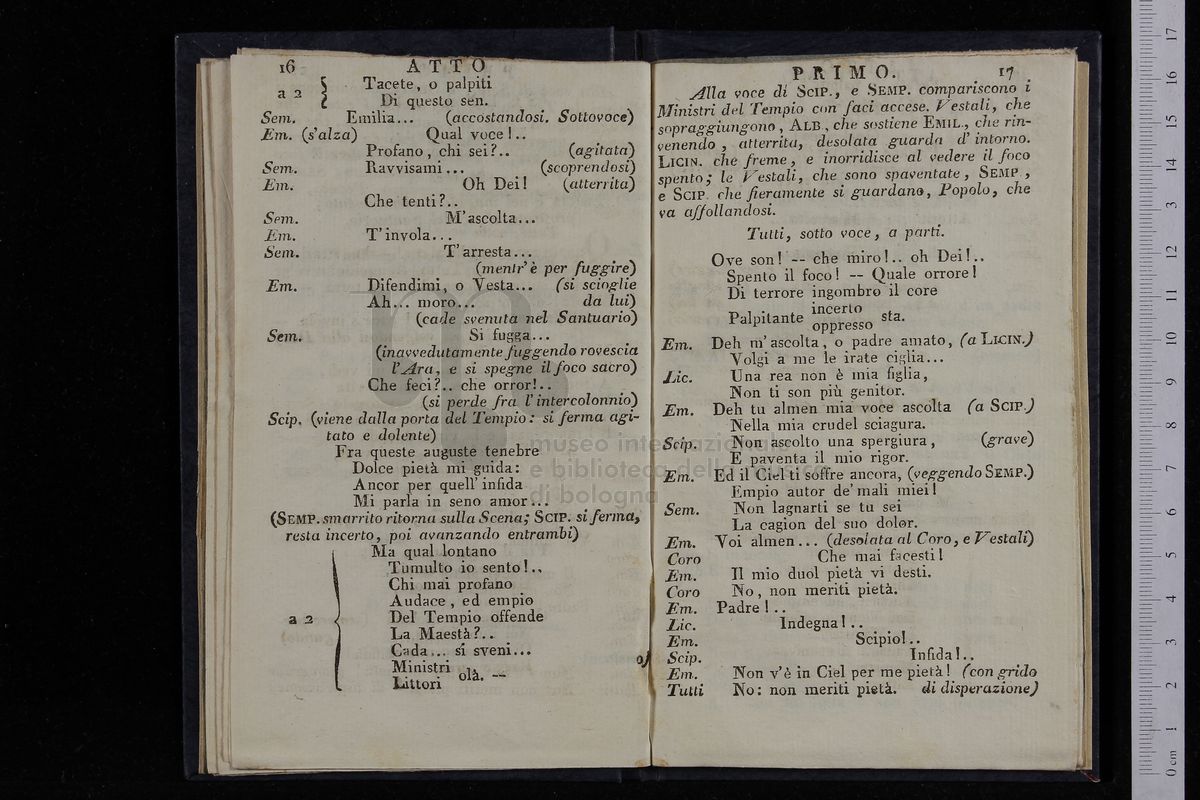 16 ATTO
a 2 Tacete, o palpiti
Di questo sen.
Sem. Emilia... (accostandosi. Sottovoce)
Em. (s'alza) Qual voce!..
Profano, chi sei?.. (agitata)
Sem. Ravvisami... (scoprendosi)
Em. Oh Dei! (atterrita)
Che tenti?..
Sem. M'ascolta...
Em. T'invola...
Sem. T'arresta...
(mentr'è per fuggire)
Em. Difendimi, o Vesta... (si scioglie
Ah... moro... da lui)
(cade svenuta nel Santuario)
Sem. Si fugga...
(inavvedutamente fuggendo rovescia
l'Ara, e si spegne il foco sacro)
Che feci?.. che orror!..
(si perde fra l'intercolonnio)
Scip. (viene dalla porta del Tempio: si ferma agi-
tato e dolente)
Fra queste auguste tenebre
Dolce pietà mi guida:
Ancor per quell'infida
Mi parla in seno amor...
(SEMP. smarrito ritorna sulla Scena; SCIP. si ferma,
resta incerto, poi avanzando entrambi)
Ma qual lontano
Tumulto io sento!..
Chi mai profano
Audace, ed empio
a 2 Del Tempio offende
La Maestà?..
Cada... si sveni...
Ministri
Littori olà. —
PRIMO. 17
Alla voce di SCIP., e SEMP. compariscono i
Ministri del Tempio con faci accese. Vestali, che
sopraggiungono, ALB. che sostiene EMIL., che rin-
venendo, atterrita, desolata guarda d'intorno.
LICIN. che freme, e inorridisce al vedere il foco
spento; le Vestali, che sono spaventate, SEMP.,
e SCIP. che fieramente si guardano, Popolo, che
va affollandosi.
Tutti, sotto voce, a parti.
Ove son! -- che miro!.. oh Dei!..
Spento il foco! -- Quale orrore!
Di terrore ingombro il core
Palpitante incerto
oppresso sta.
Em. Deh m'ascolta, o padre amato, (a LICIN.)
Volgi a me le irate ciglia...
Lic. Una rea non è mia figlia,
Non ti son più genitor.
Em. Deh tu almen mia voce ascolta (a SCIP.)
Nella mia crudel sciagura.
Scip. Non ascolto una spergiura, (grave)
E paventa il mio rigor.
Em. Ed il Ciel ti soffre ancora, (veggendo SEMP.)
Empio autor de'mali miei!
Sem. Non lagnarti se tu sei
La cagion del suo dolor.
Em. Voi almen... (desolata al Coro, e Vestali)
Coro Che mai facesti!
Em. Il mio duol pietà vi desti.
Coro No, non meriti pietà.
Em. Padre!..
Lic. Indegna!..
Em. Scipio!..
Scip. Infida!..
Em. Non v'è in Ciel per me pietà! (con grido
Tutti No: non meriti pietà. di disperazione)
museo internazionale
e biblioteca della musica
di bologna
0 cm 1 2 3 4 5 6 7 8 9 10 11 12 13 14 15 16 17